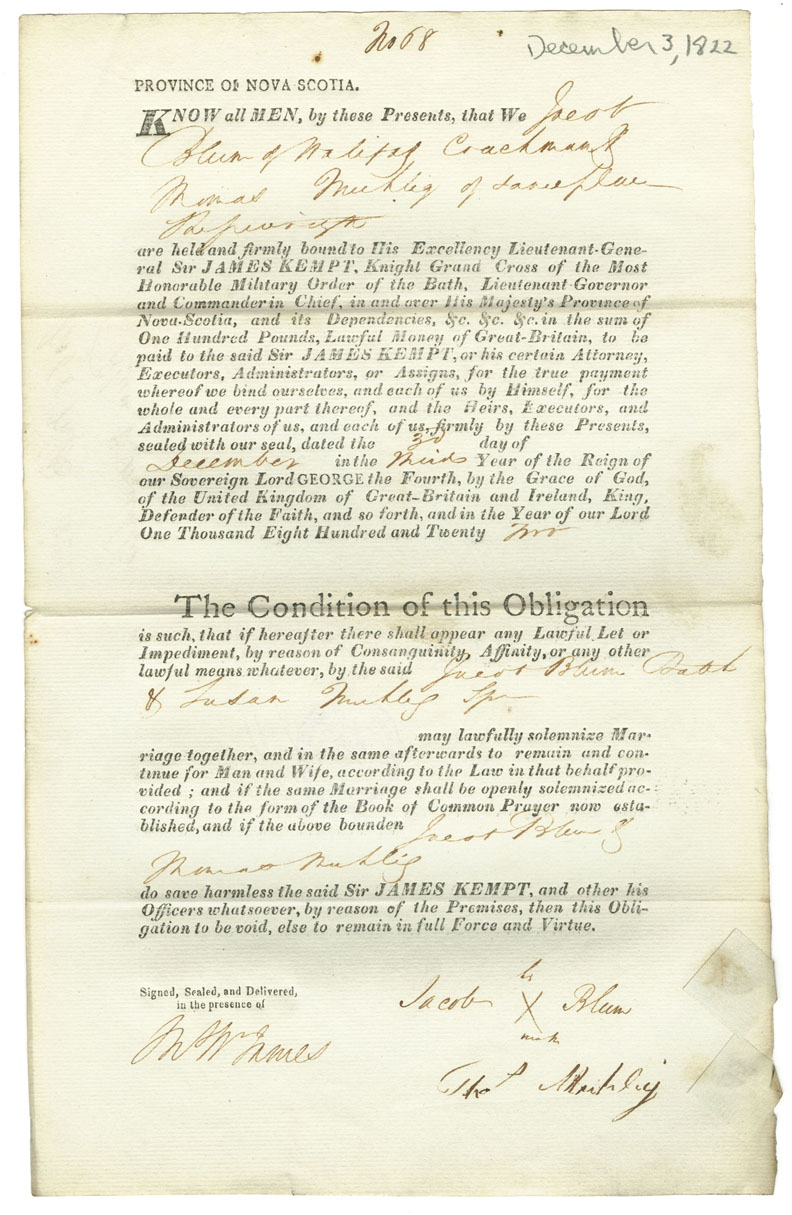 No 68
December 3, 1822
PROVINCE OF NOVA SCOTIA.
KNOW all MEN, by these Presents, that We Jacob
Blum of Halifax Coachman &
Thomas Muhlig of same place
are held and firmly bound to His Excellency Lieutenant-Gene-
ral Sir JAMES KEMPT, Knight Grand Cross of the Most
Honorable Military Order of the Bath, Lieutenant-Governor
and Commander in Chief, in and over His Majesty's Province of
Nova-Scotia, and its Dependencies, &c. &c. &c. in the sum of
One Hundred Pounds, Lawful Money of Great-Britain, to be
paid to the said Sir JAMES KEMPT, or his certain Attorney,
Executors, Administrators, or Assigns, for the true payment
whereof we bind ourselves, and each of us by Himself, for the
whole and every part thereof, and the Heirs, Executors, and
Administrators of us, and each of us, firmly by these Presents,
sealed with our seal, dated the 3rd day of
December in the Third Year of the Reign of
our Sovereign Lord GEORGE the Fourth, by the Grace of God,
of the United Kingdom of Great-Britain and Ireland, King,
Defender of the Faith, and so forth, and in the Year of our Lord
One Thousand Eight Hundred and Twenty Two
The Condition of this Obligation
is such, that if hereafter there shall appear any Lawful Let or
Impediment, by reason of Consanguinity, Affinity, or any other
lawful means whatever, by the said Jacob Blum Batch
& Susan Muhlig Spr
may lawfully solemnize Mar-
riage together, and in the same afterwards to remain and con-
tinue for Man and Wife, according to the Law in that behalf pro-
vided ; and if the same Marriage shall be openly solemnized ac-
cording to the form of the Book of Common Prayer now esta-
blished, and if the above bounden Jacob Blum &
Thomas Muhlig
do save harmless the said Sir JAMES KEMPT, and other his
Officers whatsoever, by reason of the Premises, then this Obli-
gation to be void, else to remain in full Force and Virtue.
Signed, Sealed, and Delivered,
in the presence of
his
Jacob X Blum
mark
Thos Muhlig